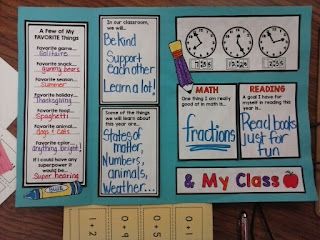 A Few of My
FAVORITE Things
Favorite game...
Solitaire
Favorite snack...
gummy bears
Favorite season...
Summer
Favorite holiday...
Thanksgiving
Favorite food...
Spaghetti
Favorite animal...
dogs & cats
Favorite color...
anything bright!
If I could have
any superpower it
would be...
Super hearing
In our classroom, we
will...
Be Kind
Support
each other
Learn a lot!
Some of the things
we will learn about
this year are...
States of
matter,
Numbers,
animals,
Weather...
MATH
One thing I am really
good at in math is...
fractions
READING
A goal I have for
myself in reading this
year is...
Read books
just for
fun
& My Class
1 + 2
0 + 9
0 + 5
0 + 1